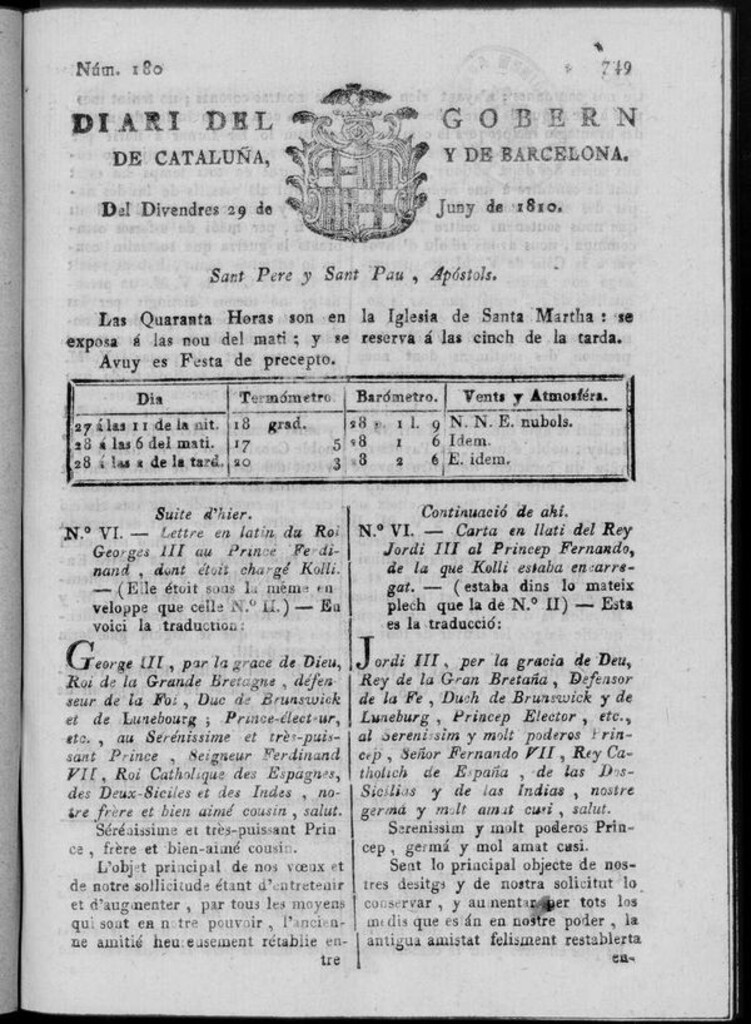 Núm. 180
749
DIARI DEL GOBERN
DE CATALUÑA, Y DE BARCELONA.
Del Divendres 29 de Juny de 1810.
Sant Pere y Sant Pau , Apóstols.
Las Quaranta Horas son en la Iglesia de Santa Martha : se
exposa á las nou del mati ; y se reserva á las cinch de la tarda.
Avuy es Festa de precepto.
Dia Termómetro Barómetro. Vents y Atmosféra.
27 á las 11 de la nit. 18 grad. 28 p. 1 l. 9 N. N. E. nubols.
28 á las 6 del mati. 17 5 28 1 6 Idem.
28 á las 2 de la tard. 20 3 28 2 6 E. idem.
Suite d'hier.
N.º VI. — Lettre en latin du Roi
Georges III au Prince Ferdi-
nand , dont étoit chargé Kolli.
— (Elle étoit sous la même en
veloppe que celle N.º II.) — En
voici la traduction:
George III , par la grace de Dieu,
Roi de la Grande Bretagne , défen-
seur de la Foi , Duc de Brunswick
et de Lunebourg ; Prince-électeur,
etc. , au Sérénissime et très-puis-
sant Prince , Seigneur Ferdinand
VII , Roi Catholique des Espagnes,
des Deux-Siciles et des Indes , no-
tre frère et bien aimé cousin , salut.
Sérénissime et très-puissant Prin
ce , frère et bien-aimé cousin.
L'objet principal de nos vœux et
de notre sollicitude étant d'entretenir
et d'augmenter , par tous les moyens
qui sont en notre pouvoir , l'ancien-
ne amitié heureusement rétablie en-
tre
Continuació de ahí.
N.º VI. — Carta en llati del Rey
Jordi III al Princep Fernando,
de la que Kolli estaba encarre-
gat. — (estaba dins lo mateix
plech que la de N.º II) — Esta
es la traducció:
Jordi III , per la gracia de Deu,
Rey de la Gran Bretaña , Defensor
de la Fe , Duch de Brunswick y de
Luneburg , Princep Elector , etc.,
al Serenissim y molt poderos Prin-
cep , Señor Fernando VII , Rey Ca-
tholich de España , de las Dos-
Sicilias y de las Indias , nostre
germá y molt amat cusi , salut.
Serenissim y molt poderos Prin-
cep , germá y mol amat cusi.
Sent lo principal objecte de nos-
tres desitgs y de nostra solicitut lo
conservar , y aumentar per tots los
medis que están en nostre poder , la
antigua amistat felisment restablerta
en-